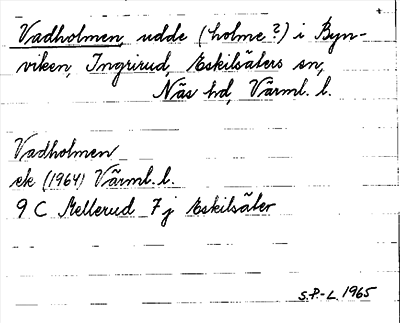 Vadholmen, udde (holme?) i Byn-
viken, Ingrirud, Eskilsäters sn,
Näs hd, Värml. l.
Vadholmen
ek (1964) Värml. l.
9 C Mellerud 7 j Eskilsäter
S.P.-L. 1965